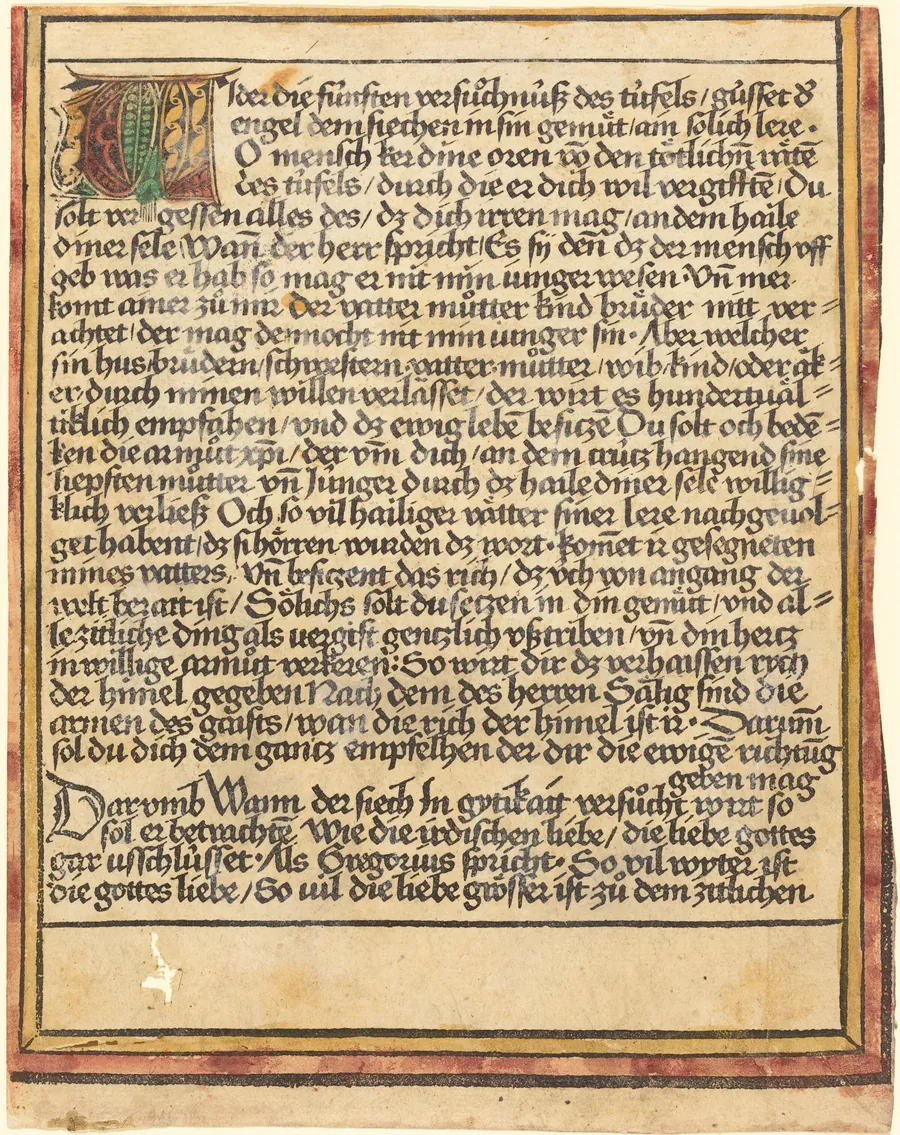 Wider die fünften versuͦchnuß des tüfels / güsset d᷎
engel dem siechen in sin gemuͤt / ain solich lere ·
O mensch ker dine oren vō den toͤtlichn̄ raͤtē
des tüfels / durch die er dich wil vergifftē / Du
solt vergessen alles des / dz dich irren mag / an dem haile
diner sele Wan̄ der herr spricht / Es sy den̄ dz der mensch vff
geb was er hab so mag er nit min iunger wesen · Vn̄ mer
komt ainer zuͦ mir der vatter muͦtter kind bruͤder nitt ver =
achtet / der mag dennocht nit min iunger sin · Aber welcher
sin hus / bruͤdern / schwestern · vatter · muͦtter / wib / kind / oder aͤk =
er · durch minen willen verlaͤsset / der wirt es hundertuaͤl =
tiklich empfahen / vnd dz ewig lebē besiczē Du solt och bedē =
ken die armuͦt xp̄i / der vm̄ dich / an dem crütz hangend sine
liepsten muͦtter vn̄ Junger durch dz haile diner sele willig =
klich verließ Och so vil hailiger vaͤtter siner lere nachgeuol =
get habent / dz si hoͤrren wurden dz wort · kom̄et ir gesegneten
mines vatters, vn̄ besiczent das rich / dz üch von angang der
welt berait ist / Soͤlichs solt du seczen in din gemuͤt / vnd al =
le zitliche ding als vergift genczlich vßtriben / vn̄ din hertz
in willige armuͦt verkeren : So wirt dir dz verhaissen rych
der him̄el gegeben Nach dem des herren Saͤlig sind die
armen des gaists / wan die rich der him̄el ist ir · Darum̄
sol du dich dem gantz empfelhen der dir die ewigē richtūg
geben mag
Darvmb Wann der siech In gytikait versuͦcht wirt so
sol er betrachtē Wie die irdischen liebe / die liebe gottes
gar usschlüsset · Als Gregorius spricht · So vil wyter ist
die gottes liebe / So vil die liebe groͤsser ist zuͦ dem zitlichen